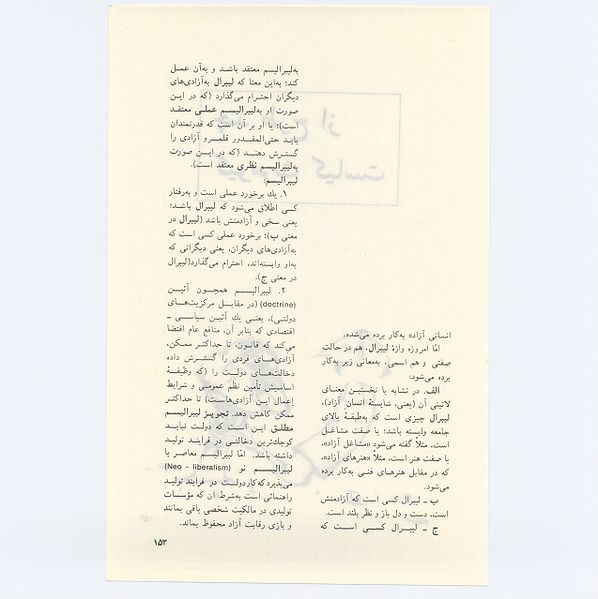 انسانی آزاد» به‌کار برده می‌شده.
امّا امروزه واژهٔ لیبرال، هم در حالت
صفتی و هم اسمی، به‌معانی زیر به‌کار
برده می‌شود:
الف. در تشابه با نخستین معنای
لاتینی آن (یعنی، شایستهٔ انسان آزاد)،
لیبرال چیزی است که به‌طبقهٔ بالای
جامعه وابسته باشد؛ یا صفت مشاغل
است، مثلاً گفته می‌شود «مشاغل آزاد»،
یا صفت هنر است، مثلاً «هنرهای آزاد»،
که در مقابل هنرهای فنی به‌کار برده
می‌شود.
ب ـ لیبرال کسی است که آزادمنش
است، دست و دل باز و نظر بلند است.
ج ـ لیبرال کسی است که
به‌لیبرالیسم معتقد باشد و به‌آن عمل
کند؛ به‌این معنا که لیبرال به‌آزادی‌های
دیگران احترام می‌گذارد (که در این
صورت او به‌لیبرالیسم عملی معتقد
است)؛ یا او بر آن است که قدرتمندان
باید حتی‌المقدور قلمرو آزادی را
گسترش دهند (که در این صورت
به‌لیبرالیسم نظری معتقد است).
لیبرالیسم:
۱. یك برخورد عملی است و به‌رفتار
کسی اطلاق می‌شود که لیبرال باشد؛
یعنی سخی و آزادمنش باشد (لیبرال در
معنی ب)؛ برخورد عملی کسی است که
به‌آزادی‌های دیگران، یعنی دیگرانی که
به‌او وابسته‌اند، احترام می‌گذارد(لیبرال
در معنی ج).
۲. لیبرالیسم همچون آئین
(doctrine) (در مقابل مرکزیت‌های
دولتی)، یعنی یك آئین سیاسی ـ
اقتصادی که بنابر آن، منافع عام اقتضا
می‌کند که قانون، تا حداکثر ممکن،
آزادی‌های فردی را گسترش داده
دخالت‌های دولت را (که وظیفهٔ
اساسیش تأمین نظم عمومی و شرایط
إعمال این آزادی‌هاست) تا حداکثر
ممکن کاهش دهد. تجویز لیبرالیسم
مطلق این است که دولت نباید
کوچك‌ترین دخالتی در فرایند تولید
داشته باشد. امّا لیبرالیسم معاصر یا
لیبرالیسم نو (Neo - liberalism)
می‌پذیرد که کار دولت در فرایند تولید
راهنمائی است به‌شرط آن که مؤسسات
تولیدی در مالکیت شخصی باقی بمانند
و بازی رقابت آزاد محفوظ بماند.
۱۵۳